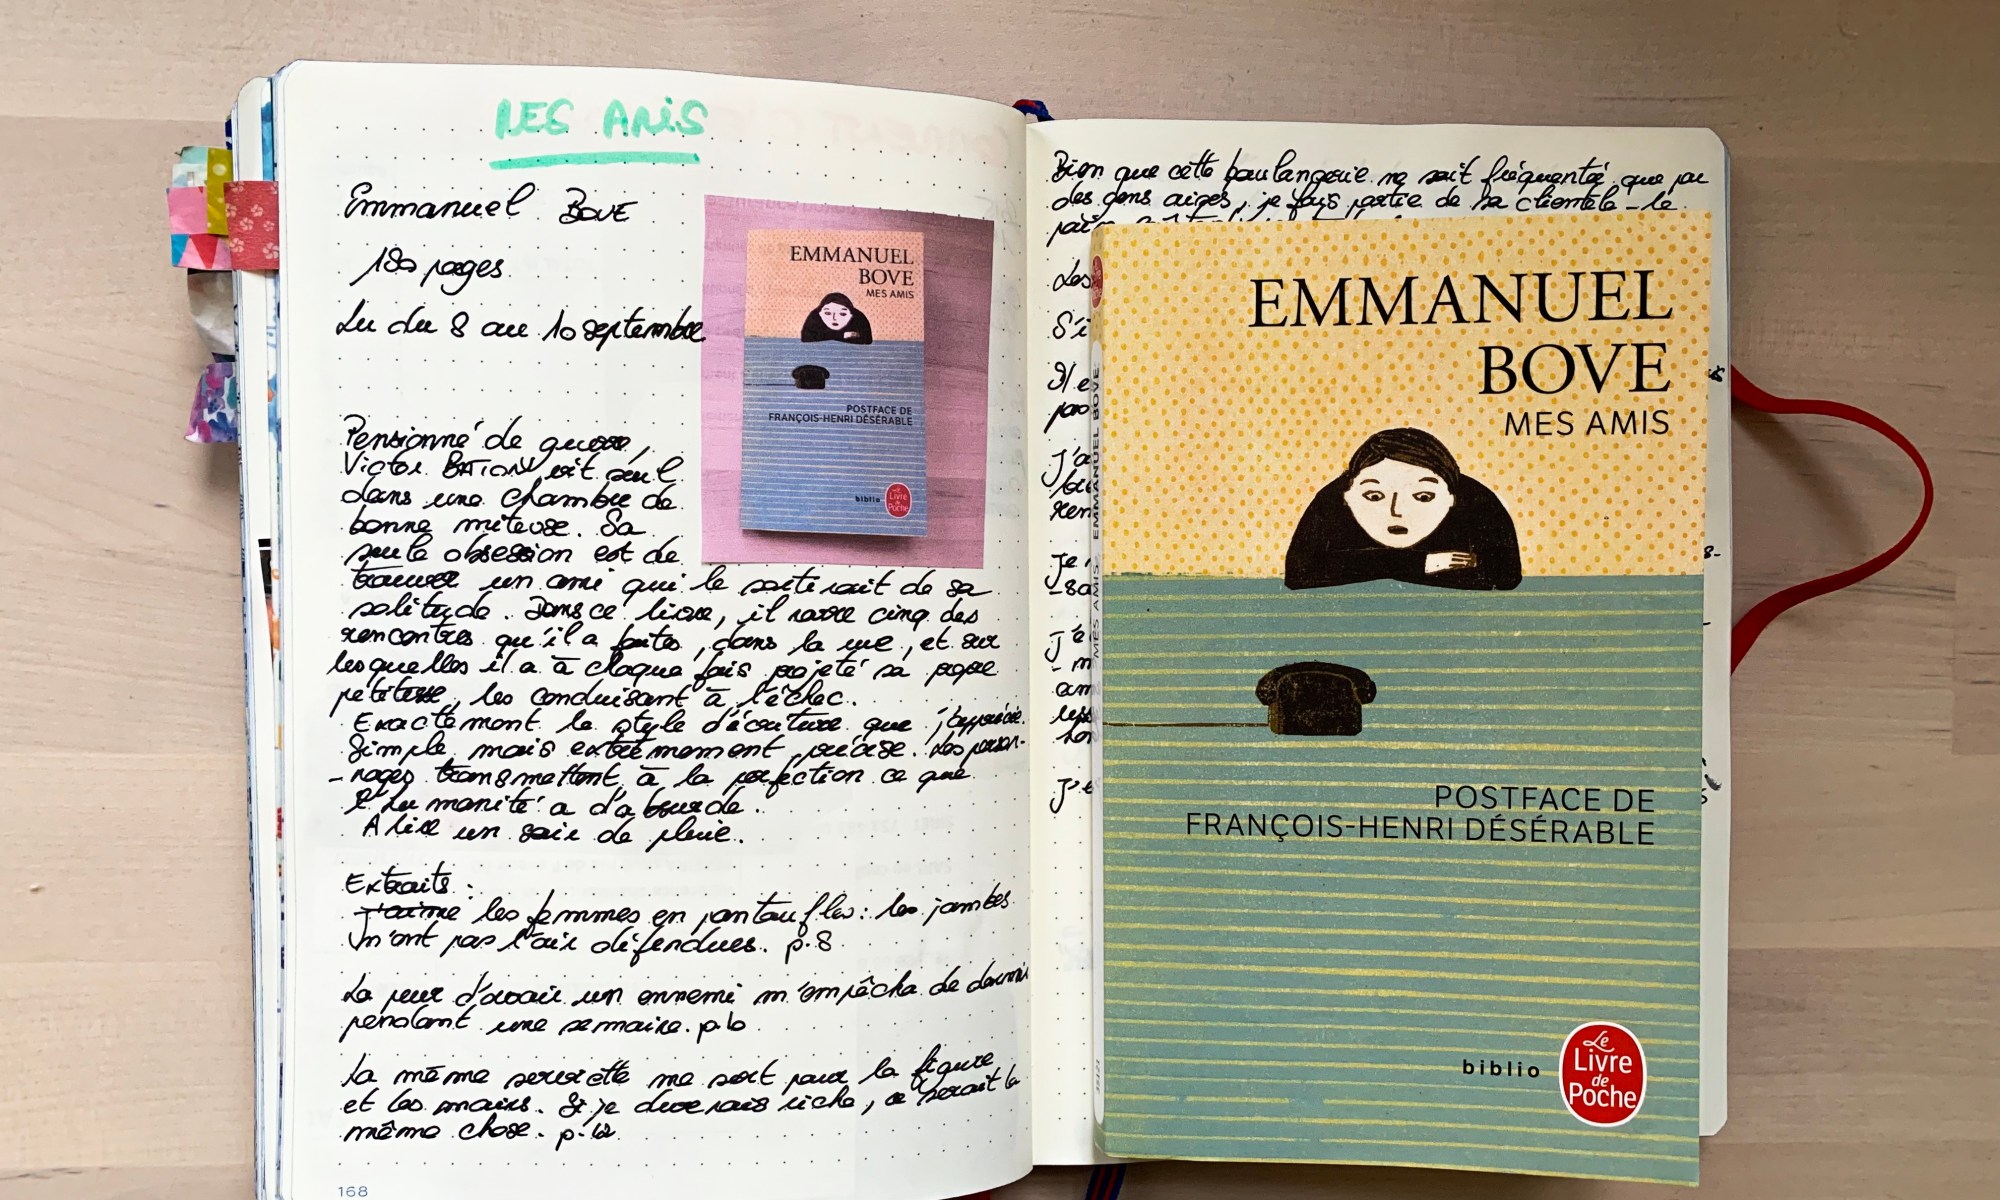 MES AMIS
Emmanuel BOVE
180 pages
Lu du 8 au 10 septembre
EMMANUEL
BOVE
MES AMIS
POSTFACE DE
FRANÇOIS-HENRI DÉSÉRABLE
biblio
Le
Livre
de
Poche
Pensionné de guerre,
Victor BATON vit seul
dans une chambre de
bonne miteuse. Sa
seule obsession est de
trouver un ami qui le sortirait de sa
solitude. Dans ce livre, il narre cinq des
rencontres qu'il a faites, dans la rue, et sur
lesquelles il a à chaque fois projeté sa propre
petitesse, les conduisant à l'échec.
Exactement le style d'écriture que j'apprécie.
Simple mais extrêmement précise. Les person-
-nages transmettent à la perfection ce que
l'humanité a d'absurde.
A lire un soir de pluie.
Extraits :
J'aime les femmes en pantoufles : les jambes
n'ont pas l'air défendues. p.8
La peur d'avoir un ennemi m'empêcha de dormir
pendant une semaine. p.10
La même serviette me sert pour la figure
et les mains. Si je devenais riche, ce serait la
même chose. p.12
168
Bien que cette boulangerie ne soit fréquentée que par
des gens aisés, je fais partie de sa clientèle - le
Les
S'i
Il e
J'a
ren
Je
-sa
am
EMMANUEL
BOVE
MES AMIS
POSTFACE DE
FRANÇOIS-HENRI DÉSÉRABLE
biblio
Le
Livre
de
Poche
EMMANUEL BOVE
MES AMIS